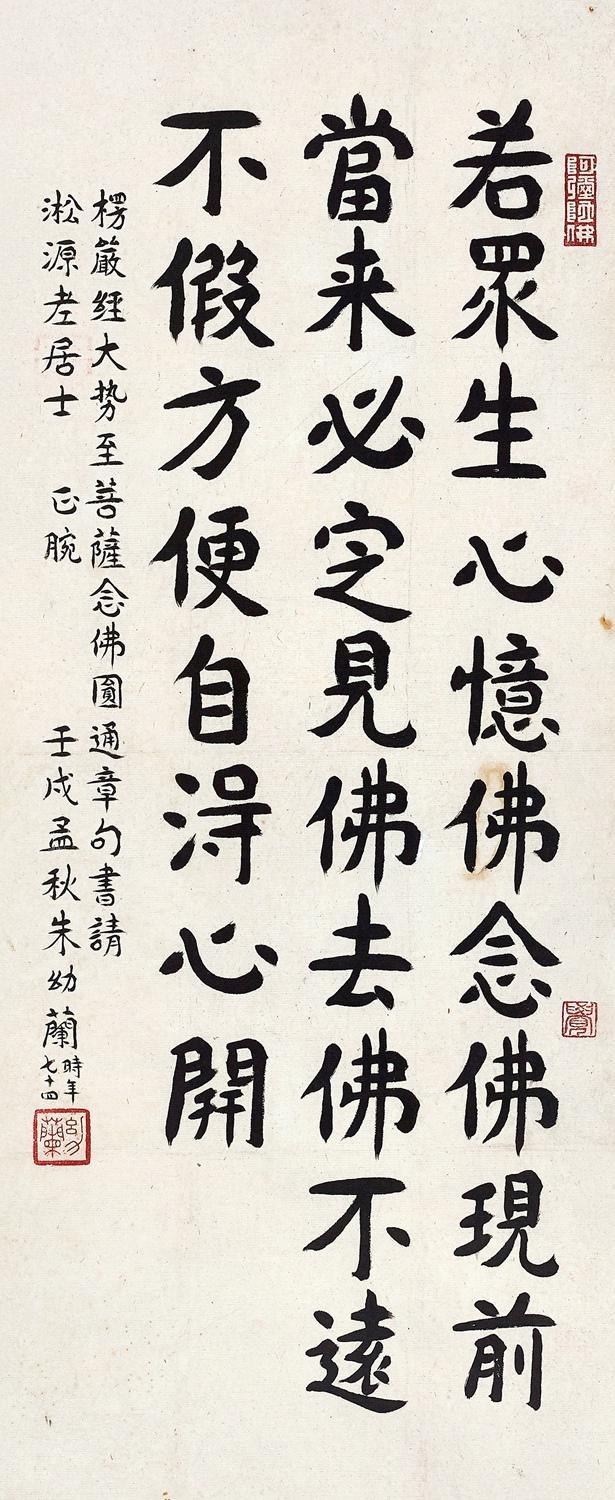 阿彌陀佛
若眾生心憶佛念佛現前
當来必定見佛去佛不遠
不假方便自得心開
楞嚴經大势至菩薩念佛圓通章句書請
淞源老居士 正腕 壬戌孟秋朱幼蘭
時年
七十四
幼蘭